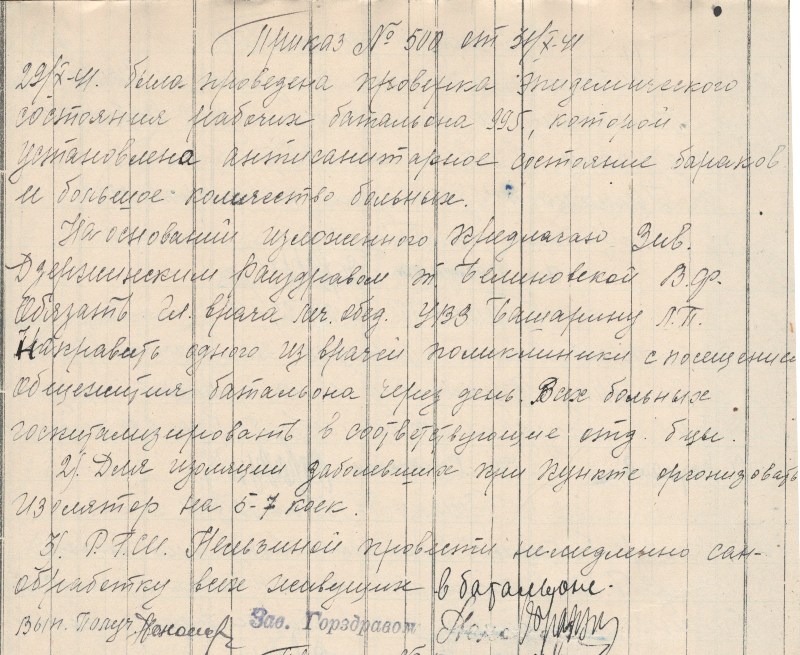 Приказ № 500 от 31/X-41
29/X-41. была проведена проверка эпидемического
состояния рабочих батальона 995, которой
установлена антисанитарное состояние бараков
и большое количество больных.
На основании изложенного предлагаю Зав.
Дзержинским Райздравом т. В.Ф.
обязать Гл. врача леч. обед. УВЗ Башарину Л.П.
Направить одного из врачей поликлиники с посещением
общежития батальона через день. Всех больных
госпитализировать в соответствующие отд. б-цы.
2). Для изоляции заболевших при пункте организовать
изолятор на 5-7 коек.
3). провести немедленно сан-
обработку всех живущих в батальоне.
Вып. Получ.
Зав. Горздравом